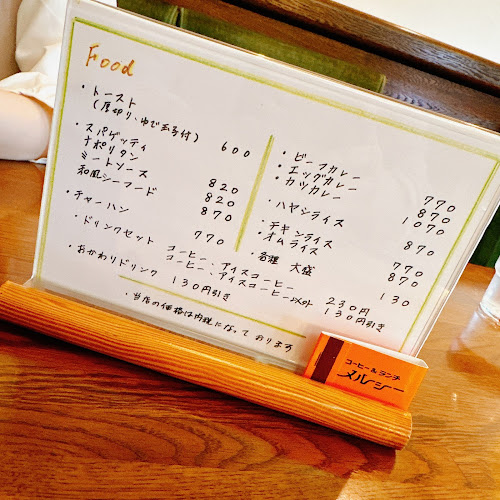 Food
・トースト
(厚切り、ゆで玉子付) 600
・スパゲッティ
ナポリタン 820
ミートソース 820
和風シーフード 870
・チャーハン 770
・ビーフカレー 770
・エッグカレー 870
・カツカレー 1070
・ハヤシライス 870
・チキンライス 770
・オムライス 870
・各種 大盛 130
・ドリンクセット コーヒー、アイスコーヒー 230円
コーヒー、アイスコーヒー以外 130円引き
・おかわりドリンク 130円引き
・当店の価格は内税になっております
コーヒー&ランチ
メルシー